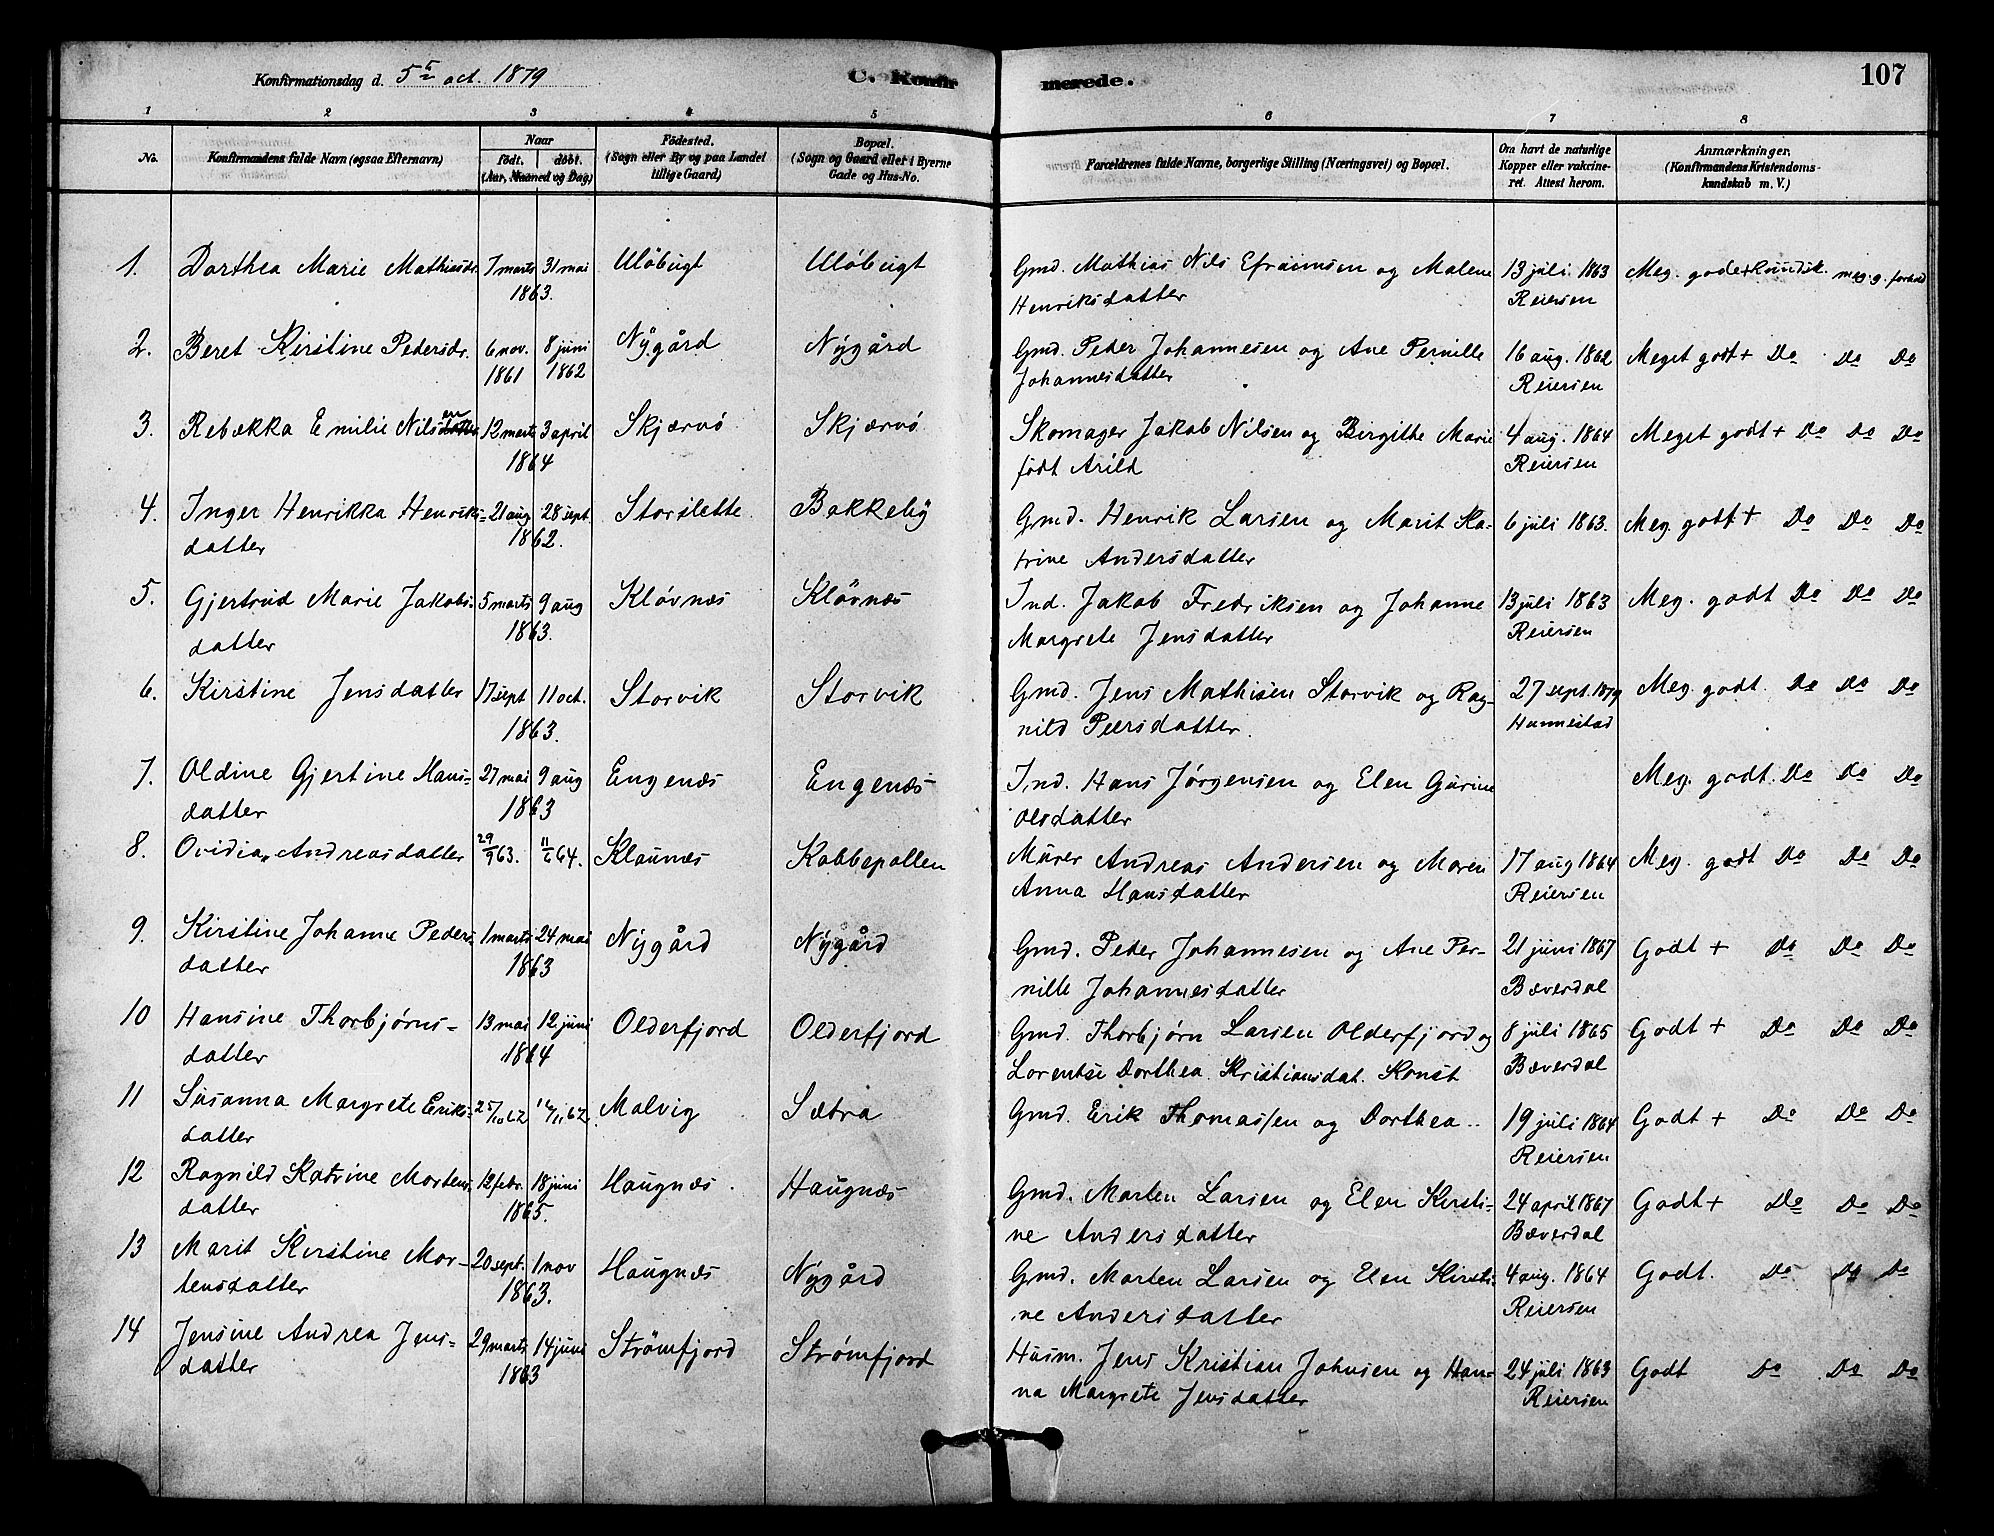 Konfirmationsdag d. 5te oct. 1879
C. Konfirmerede.
107
1 2 3 4 5 6 7 8
No.
Konfirmandens fulde Navn (ogsaa Efternavn)
Naar
født. døbt.
(Aar, Maaned og Dag)
Fødested.
(Sogn eller By og paa Landet
tillige Gaard)
Bopæl.
(Sogn og Gaard eller i Byerne
Gade og Hus-No.
Forældrenes fulde Navne, borgerlige Stilling (Næringsvei) og Bopæl.
Om havt de naturlige
Kopper eller vakcine-
ret. Attest herom.
Anmærkninger.
(Konfirmandens Kristendoms-
kundskab m. V.)
1. Dorthea Marie Mathiasdr. 7 marts 31 mai Uløbugt Uløbugt Gmd. Mathias Nils Efraimsen og Malene 13 juli 1863 Meg. gode + Kundsk. meg. g. forhold
1863. Henriksdatter Reiersen
2. Beret Kirstine Pedersdr. 6 nov. 8 juni Nygård Nygård Gmd. Peder Johannesen og Ane Pernille 16 aug. 1862 Meget godt + Do Do Do
1861 1862 Johannesdatter Reiersen
3. Rebækka Emilie Nilsen 12 marts 3 april Skjærvø Skjærvø Skomager Jakob Nilsen og Birgithe Marie 4 aug. 1864 Meget godt + Do Do Do
1864 født Arild Reiersen
4. Inger Henrikka Henriks= 21 aug 28 sept. Storslette Bakkeby Gmd. Henrik Larsen og Marit Ka- 6 juli 1863. Meg. godt + Do Do Do
datter 1862. trine Andersdatter
5. Gjertrud Marie Jakobs- 5 marts 9 aug Kløvnæs Kløvnæs Ind. Jakob Fredriksen og Johanne 13 juli 1863 Meg. godt Do Do Do
datter 1863. Margrete Jensdatter Reiersen
6. Kirstine Jensdatter 17 sept 11 oct. Storvik Storvik Gmd. Jens Mathisen Storvik og Rag- 27 sept. 1879 Meg. godt. Do Do Do
1863. nild Peersdatter. Hannestad
7. Oldine Gjertine Hans- 27 mai 9 aug Engenæs Engenæs Ind. Hans Jørgensen og Elen Gurine Meg. godt. Do Do Do
datter 1863 Olsdatter
8. Ovidia Andreasdatter 29/9 63. 11/6 64. Klaunæs Kobbepollen Murer Andreas Andersen og Maren 17 aug 1864 Meg. godt Do Do Do
Anna Hansdatter Reiersen
9. Kirstine Johanne Peders- 1 marts 24 mai Nygård Nygård Gmd. Peder Johannesen og Ane Per- 21 juni 1867 Godt + Do Do Do
datter 1863 nille Johannesdatter Bæverdal
10 Hansine Thorbjørns- 13 mai 12 juni Olderfjord Olderfjord Gmd. Thorbjørn Larsen Olderfjord og 8 juli 1865 Godt + Do Do Do
datter 1864 Lorentse Dorthea Kristiansdat. Konst Bæverdal
11 Susanna Margrete Eriks- 25/10 62 Malvig Sætra Gmd. Erik Thomassen og Dorthea .. 19 juli 1864 Godt + Do Do Do
datter Reiersen
12 Ragnild Katrine Mortens- 12 febr. 18 juni Haugnæs. Haugnæs Gmd. Morten Larsen og Elen Kirsti- 24 april 1867 Godt + Do Do Do
datter 1865. ne Andersdatter Bæverdal
13 Marit Kirstine Mor- 20 sept. 1 nov Haugnæs Nygård Gmd. Morten Larsen og Elen Kirsti- 4 aug. 1864 Godt. Do Do Do
tensdatter 1863. ne Andersdatter Reiersen
14 Jensine Andrea Jens- 29 marts 14 juni Strømfjord Strømfjord Husm. Jens Kristian Johnsen og Han- 24 juli 1863 Godt Do Do Do
datter 1863 na Margrete Jensdatter Reiersen